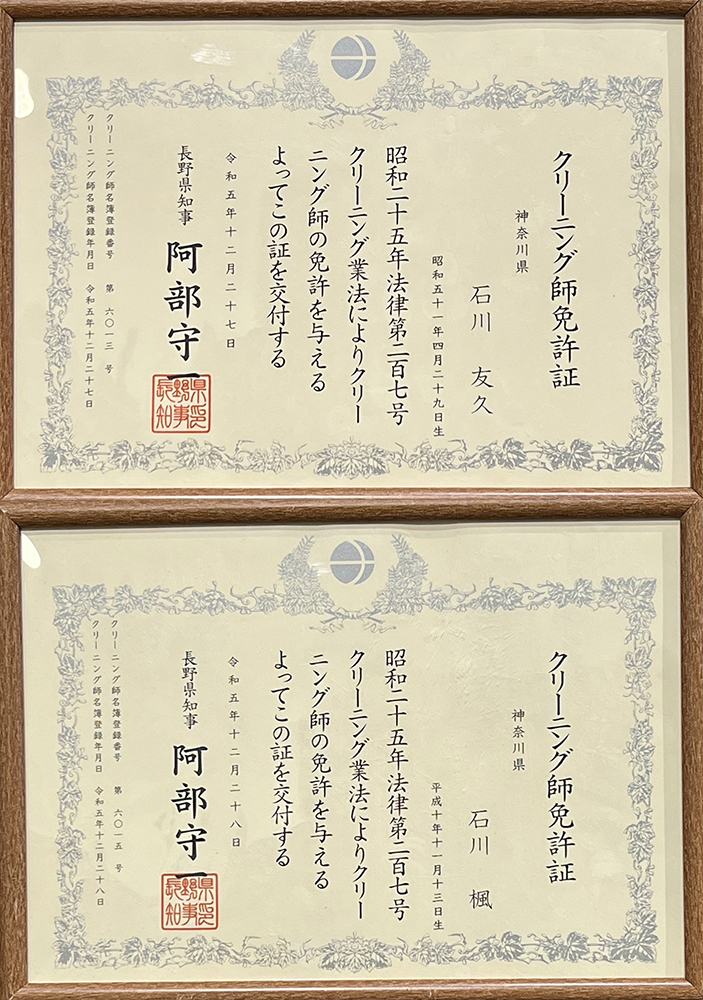 クリーニング師免許証
神奈川県
石川 友久
昭和五十一年四月二十九日生
昭和二十五年法律第二百七号
クリーニング業法によりクリー
ニング師の免許を与える
よってこの証を交付する
令和五年十二月二十七日
長野県知事 阿部守一
長野県知事印
クリーニング師名簿登録番号 第 六〇一三 号
クリーニング師名簿登録年月日 令和五年十二月二十七日
クリーニング師免許証
神奈川県
石川 楓
平成十年十一月十三日生
昭和二十五年法律第二百七号
クリーニング業法によりクリー
ニング師の免許を与える
よってこの証を交付する
令和五年十二月二十八日
長野県知事 阿部守一
長野県知事印
クリーニング師名簿登録番号 第 六〇一五 号
クリーニング師名簿登録年月日 令和五年十二月二十八日